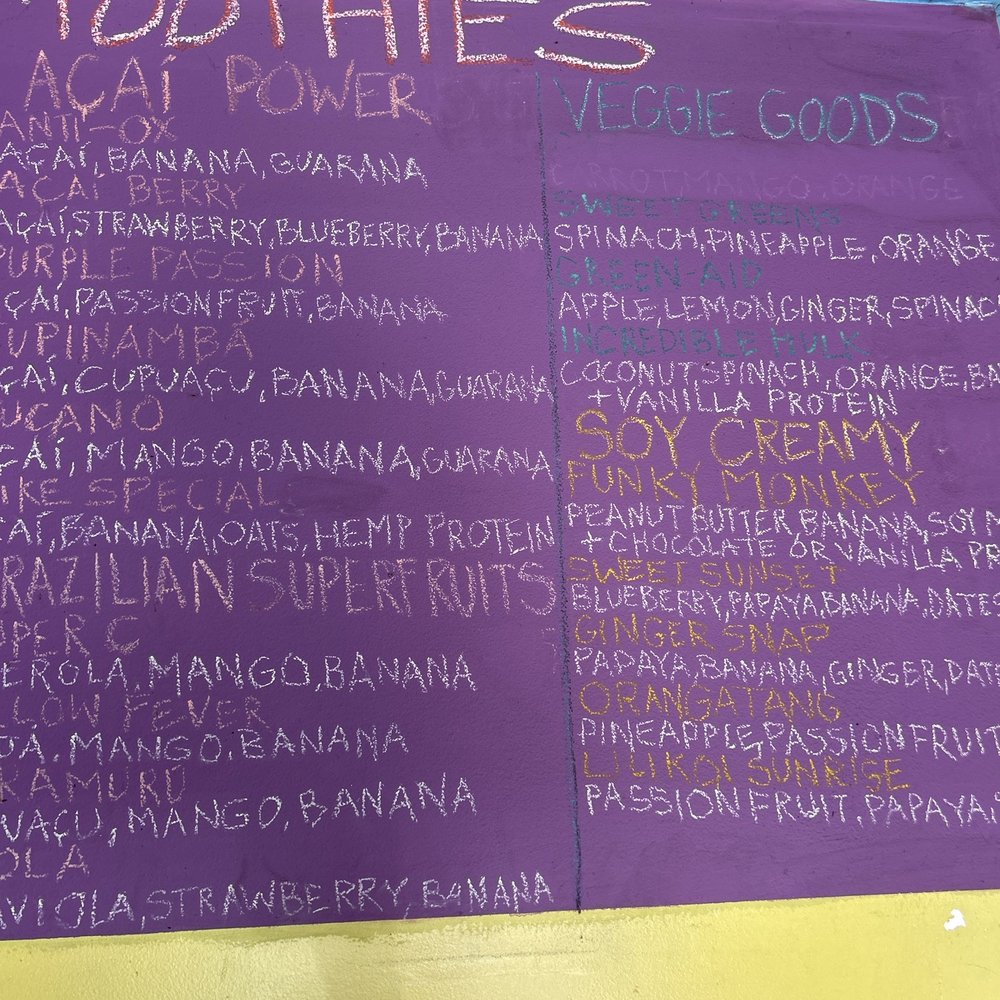 MOOTHIES
AÇAÍ POWER
ANTI-OX
AÇAÍ, BANANA, GUARANA
AÇAÍ BERRY
AÇAÍ, STRAWBERRY, BLUEBERRY, BANANA
PURPLE PASSION
ÇAÍ, PASSIONFRUIT, BANANA
UPINAMBÁ
ÇAÍ, CUPUAÇU, BANANA, GUARANA
UÇANO
ÇAÍ, MANGO, BANANA, GUARANA
IKE SPECIAL
AÍ, BANANA, OATS, HEMP PROTEIN
RAZILIAN SUPERFRUITS
PER C
EROLA, MANGO, BANANA
LOW FEVER
MANGO, BANANA
RAMURU
UAÇU, MANGO, BANANA
OLA
AVIOLA, STRAWBERRY, BANANA
VEGGIE GOODS
CARROT, MANGO, ORANGE
SWEET GREENS
SPINACH, PINEAPPLE, ORANGE
GREEN-AID
APPLE, LEMON, GINGER, SPINAC
INCREDIBLE HULK
COCONUT, SPINACH, ORANGE, BA
+VANILLA PROTEIN
SOY CREAMY
FUNKY MONKEY
PEANUT BUTTER BANANA, SOY M
+ CHOCOLATE OR VANILLA PR
SWEET SUNSET
BLUEBERRY, PAPAYA, BANANA, DATES
GINGER SNAP
PAPAYA, BANANA, GINGER, DATE
ORANGATANG
PINEAPPLE, PASSIONFRUIT
LILIKOI SUNRISE
PASSIONFRUIT, PAPAYA,